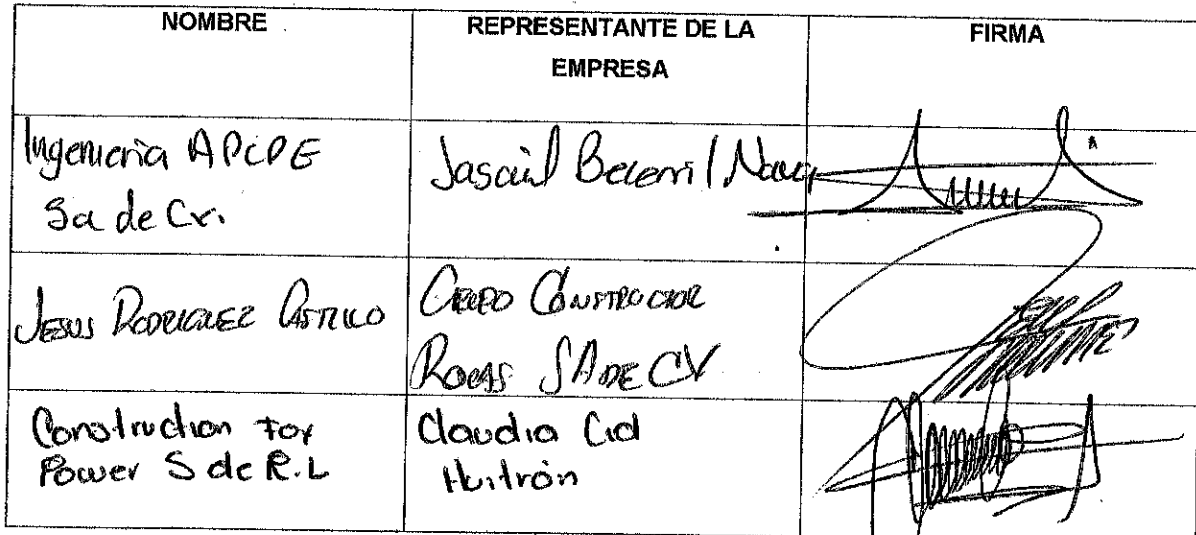 NOMBRE
REPRESENTANTE DE LA
EMPRESA
FIRMA
Ingenieria APCPE
Sa de Cv.
Becerril
JESUS RODRIGUEZ CASTILLO
GRUPO CONSTRUCTOR
ROCAS SA DE CV
Construction For
Power S de R.L
Claudia Cid
Huitrón